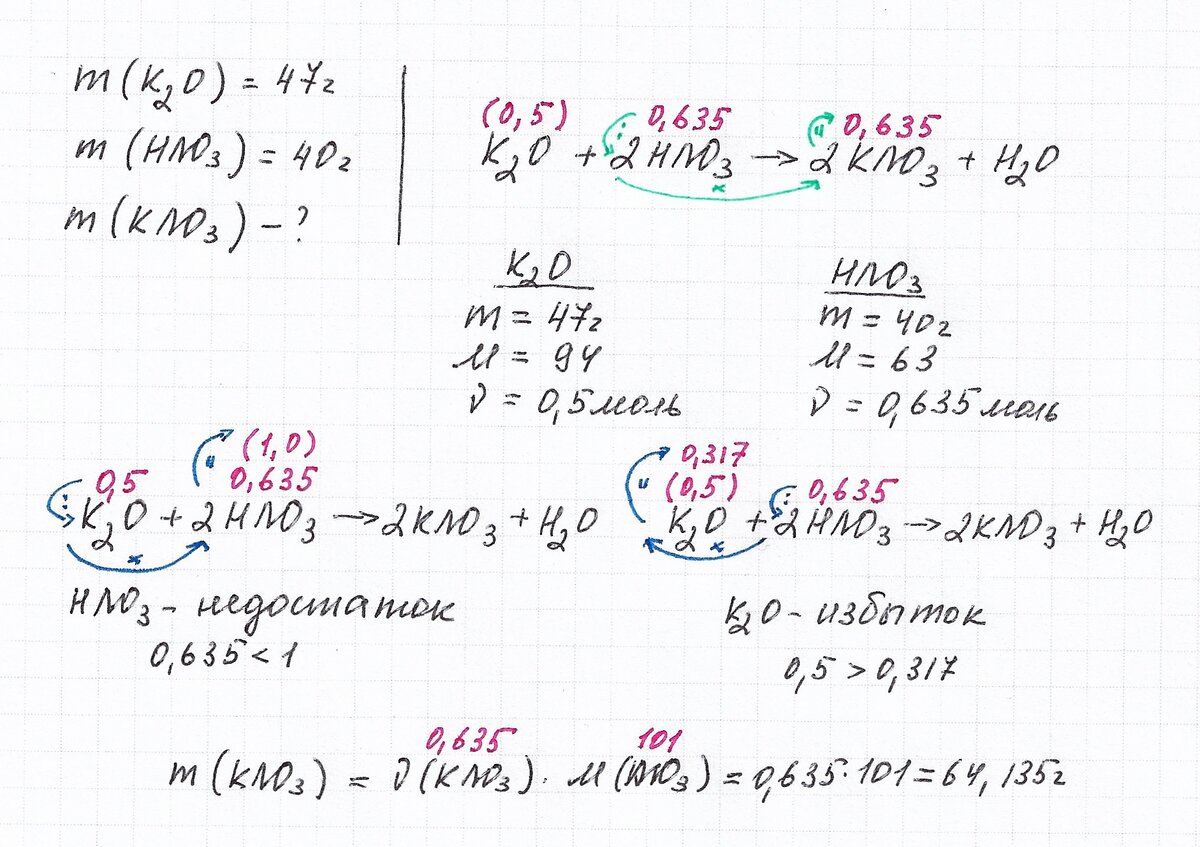 m(K₂O) = 47г
m(HNO₃) = 40г
m(KNO₃) - ?
(0,5) : 0,635 и 0,635
K₂O + 2HNO₃ → 2KNO₃ + H₂O
×
K₂O
m = 47г
M = 94
ν = 0,5 моль
HNO₃
m = 40г
M = 63
ν = 0,635 моль
и (1,0)
: 0,5 0,635
K₂O + 2HNO₃ → 2KNO₃ + H₂O
×
HNO₃ - недостаток
0,635 < 1
0,317
и (0,5) : 0,635
K₂O + 2HNO₃ → 2KNO₃ + H₂O
×
K₂O - избыток
0,5 > 0,317
0,635 101
m(KNO₃) = ν(KNO₃) · M(KNO₃) = 0,635 · 101 = 64,135г